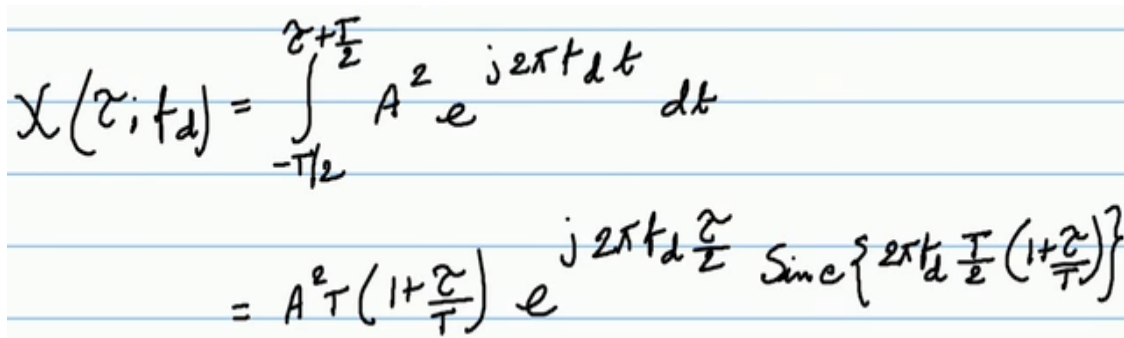 χ(τ; f_d) = ∫_{-T/2}^{τ+T/2} A² e^{j2πf_d t} dt
= A²T(1+τ/T) e^{j2πf_d τ/2} Sinc{2πf_d T/2 (1+τ/T)}